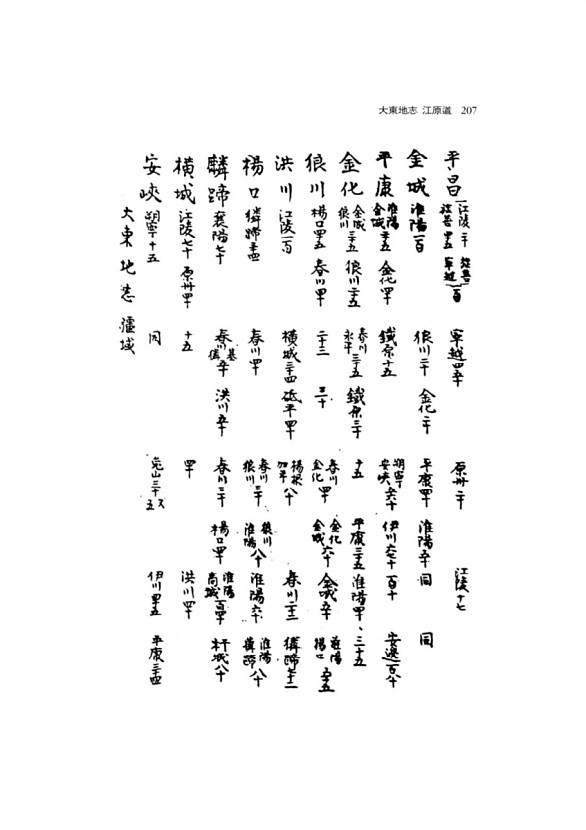 大東地志 江原道 207
平昌 江陵二十 旌善四五 旌善 寧越一百 寧越四五十 原州二十 江陵十七
金城 淮陽一百 狼川二十 金化二十 平康四十 淮陽五十 同 同
平康 淮陽 金城三五 金化四十 鐵原十五 朔寧 安峽六十 伊川六七十 百十 安邊百六十
金化 金城三十五 狼川 狼川二十五 春川 永平三十五 鐵原三十 十五 平康三十五 淮陽四十 三十五
狼川 楊口四五 春川四十 二十三 三十 春川 金化四十 金化 金城六十 金城五十 淮陽 楊口五十五
洪川 江陵一百 橫城三十四 砥平四十 楊根 加平八十 春川二十三 麟蹄七十一
楊口 麟蹄三十四 春川四十 春川 狼川三十 狼川 淮陽八十 淮陽六十 淮陽 麟蹄八十
麟蹄 襄陽七十 春川 基倨五十 洪川五十 春川三十 楊口四十 淮陽 高城百四十 杆城八十
橫城 江陵七十 原州四十 十五 四十 洪川四十
安峽 朔寧十五 同 兎山三十又五 伊川四五 平康三十四
大東地志 疆域